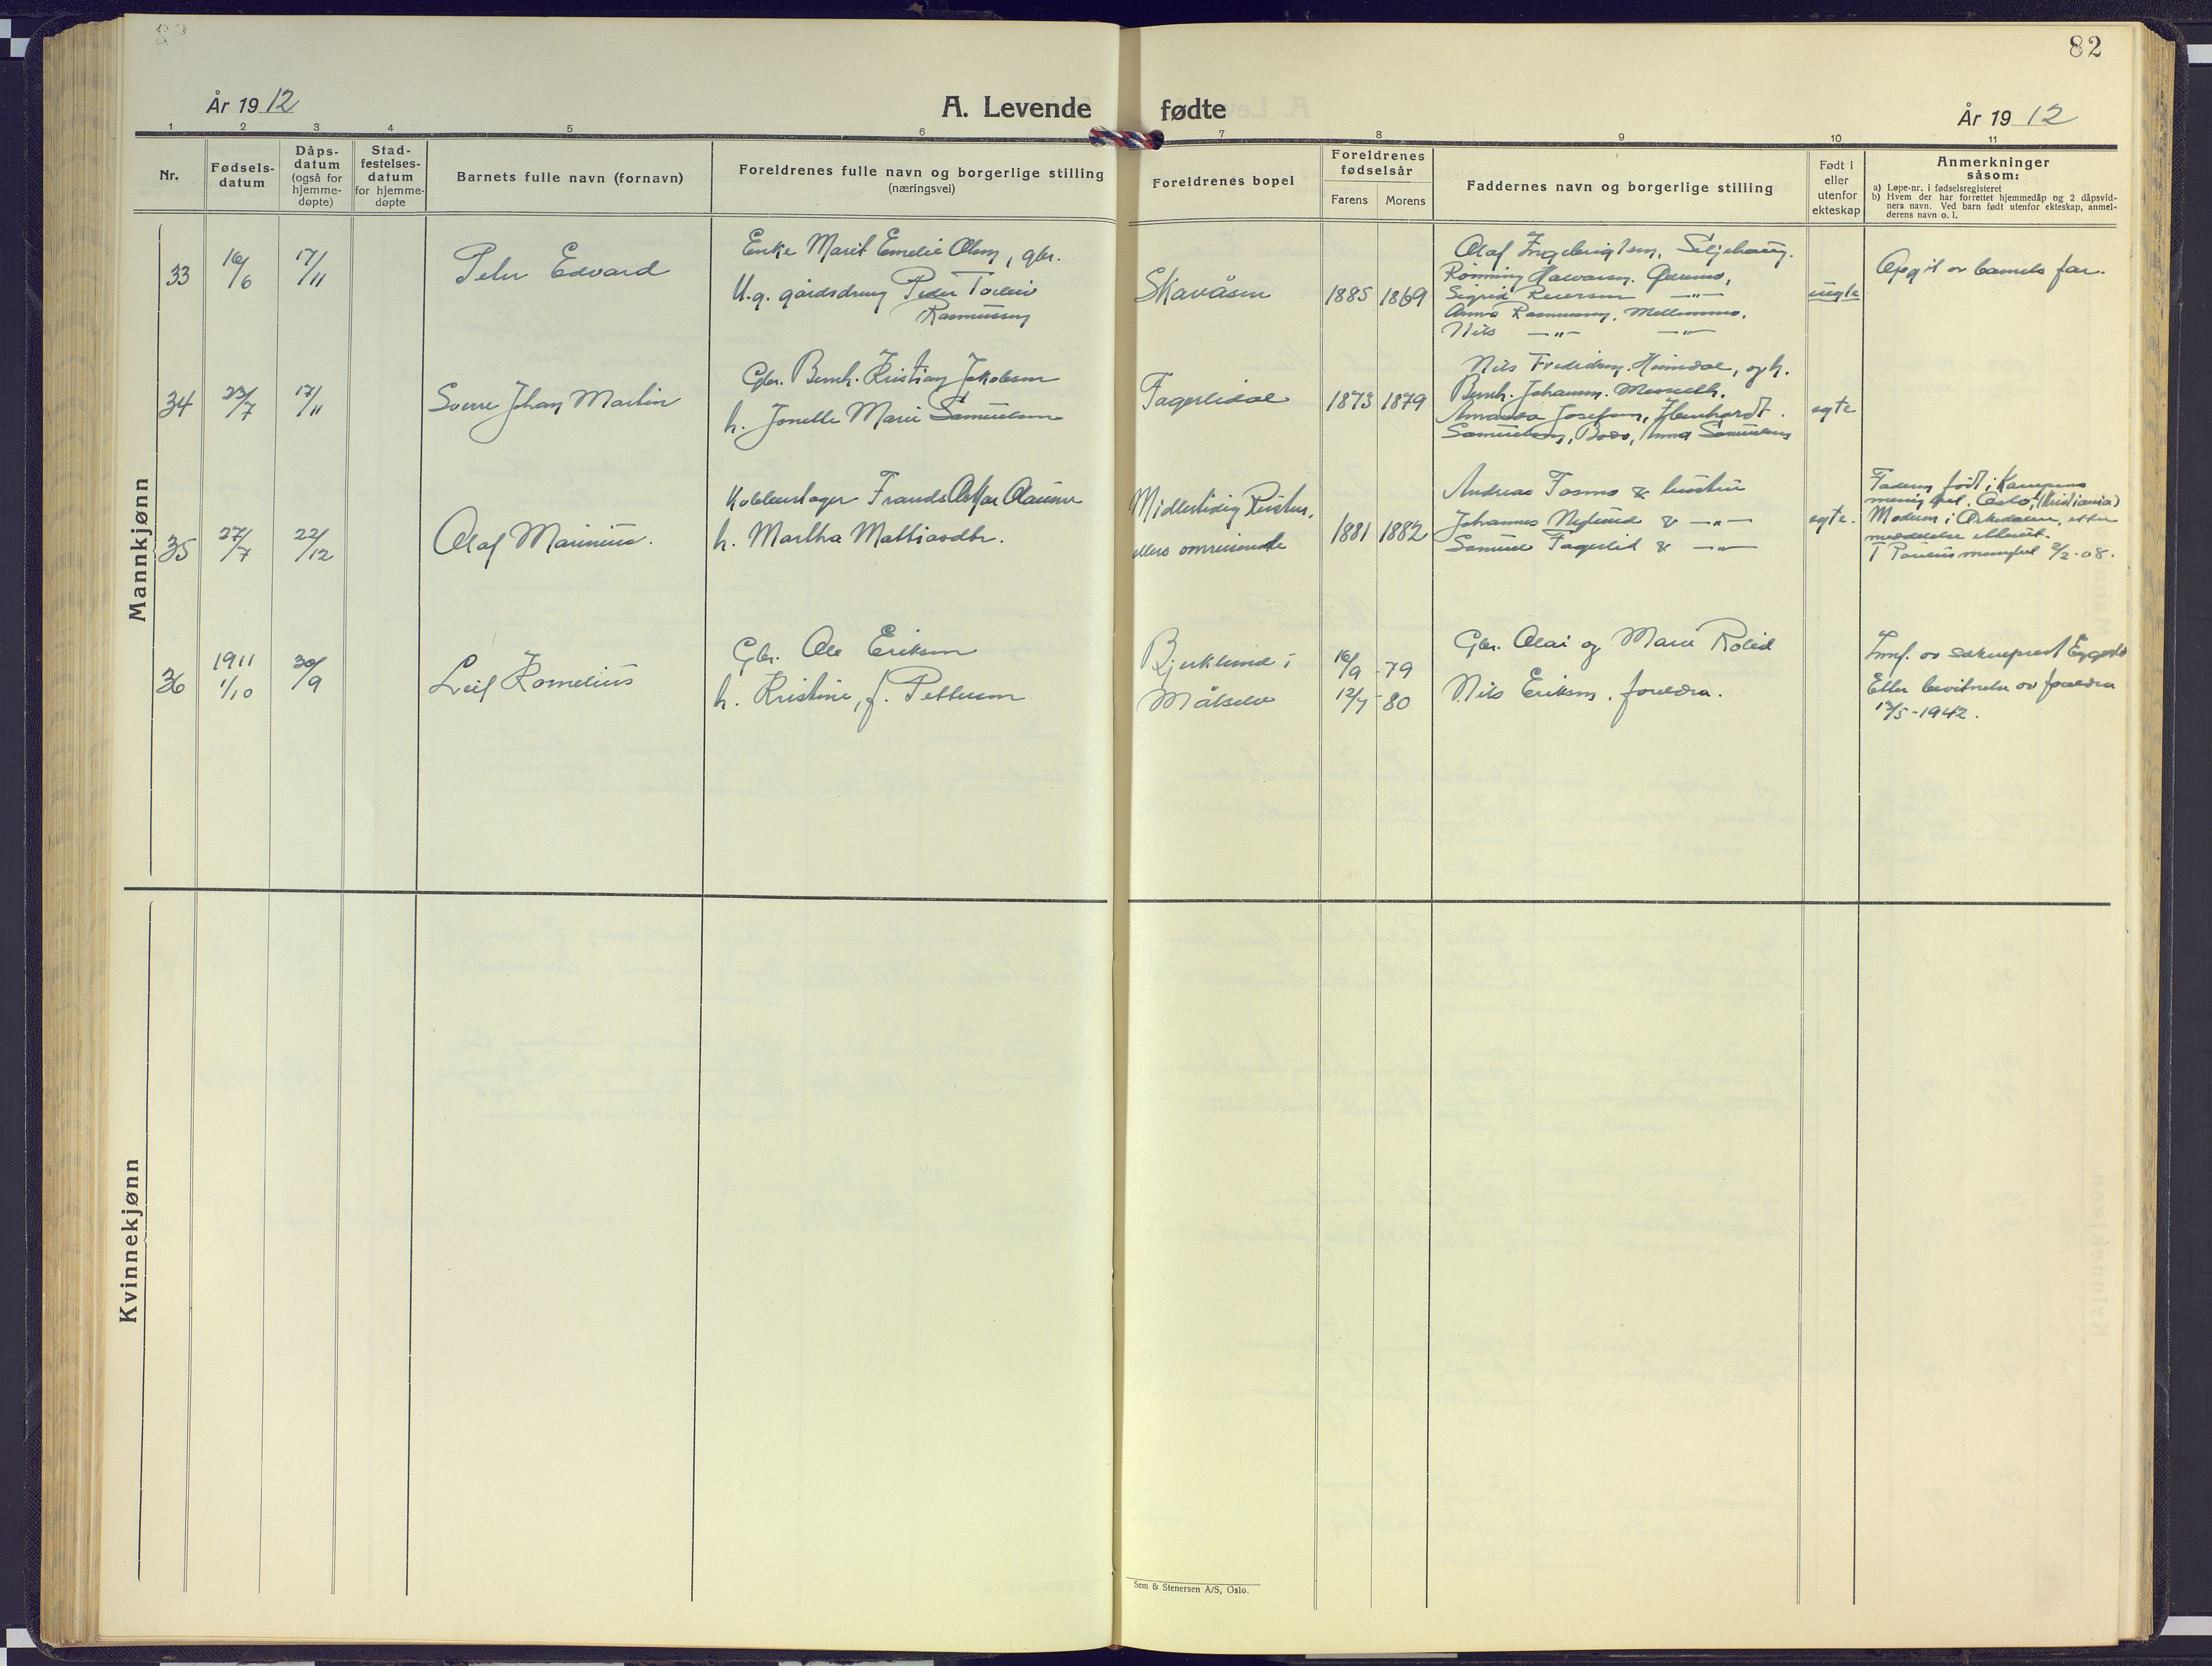 82
År 1912
A. Levende fødte
År 1912
1 2 3 4 5 6 7 8 9 10 11
Nr.
Fødsels-
datum
Dåps-
datum
(også for
hjemme-
døpte)
Stad-
festelses-
datum
for hjemme-
døpte
Barnets fulle navn (fornavn)
Foreldrenes fulle navn og borgerlige stilling
(næringsvei)
Foreldrenes bopel
Foreldrenes
fødselsår
Farens Morens
Faddernes navn og borgerlige stilling
Født i
eller
utenfor
ekteskap
Anmerkninger
såsom:
a) Løpe-nr. i fødselsregisteret
b) Hvem der har forrettet hjemmedåp og 2 dåpsvid-
ners navn. Ved barn født utenfor ekteskap, anmel-
derens navn o. l.
Mannkjønn
33
16/6
17/11
Peder Edvard
Enke Marit Emelie Olsen, gbr.
U.g. gårdsdreng Peder Torleiv
Rasmussen
Skavåsen
1885 1869
Olaf Ingebrigtsen, Seljehaug.
Rønning Halvorsen,
Sigrid Reiersen —„—
Anna Rasmussen, Mellemmo.
Nils —„— —„—
uegte
Opgit av barnets far.
34
23/7
17/11
Sverre Johan Martin
Gbr. Bernh. Kristian Jakobsen
h. Jonette Marie Samuelsen
Fagerlidal
1873 1879
Nils Fredriksen, Heimdal, og h.
Bernh. Johansen,
Amanda Josefsen,
Samuelsen, Bodø, Anna Samuelsen
egte
35
27/7
22/12
Olaf Marinius.
Frands Oskar Olausen
h. Martha Mathiasdtr.
Midlertidig
ellers omreisende
1881 1882
Andreas Fosmo & hustru
Johannes Neslund & —„—
Samuel Fagerlid & —„—
egte.
Faderen født i Kampens
menighet, Oslo, (Kristiania)
Moderen i Orkedalen, efter
meddelelse
T Paulus menighet 2/2-08.
36
1911
1/10
30/9
Leif Kornelius
Gbr. Ole Eriksen
h. Kristine, f. Pettersen
Bjerklund i
Målselv
16/9 -79
12/7 -80
Gbr. Olai og Marie Rolid
Nils Eriksen, foreldra.
egte
Innf. av sokneprest
Etter bevitnelse av foreldra
13/5-1942.
Kvinnekjønn
Sem & Stenersen A/S, Oslo.